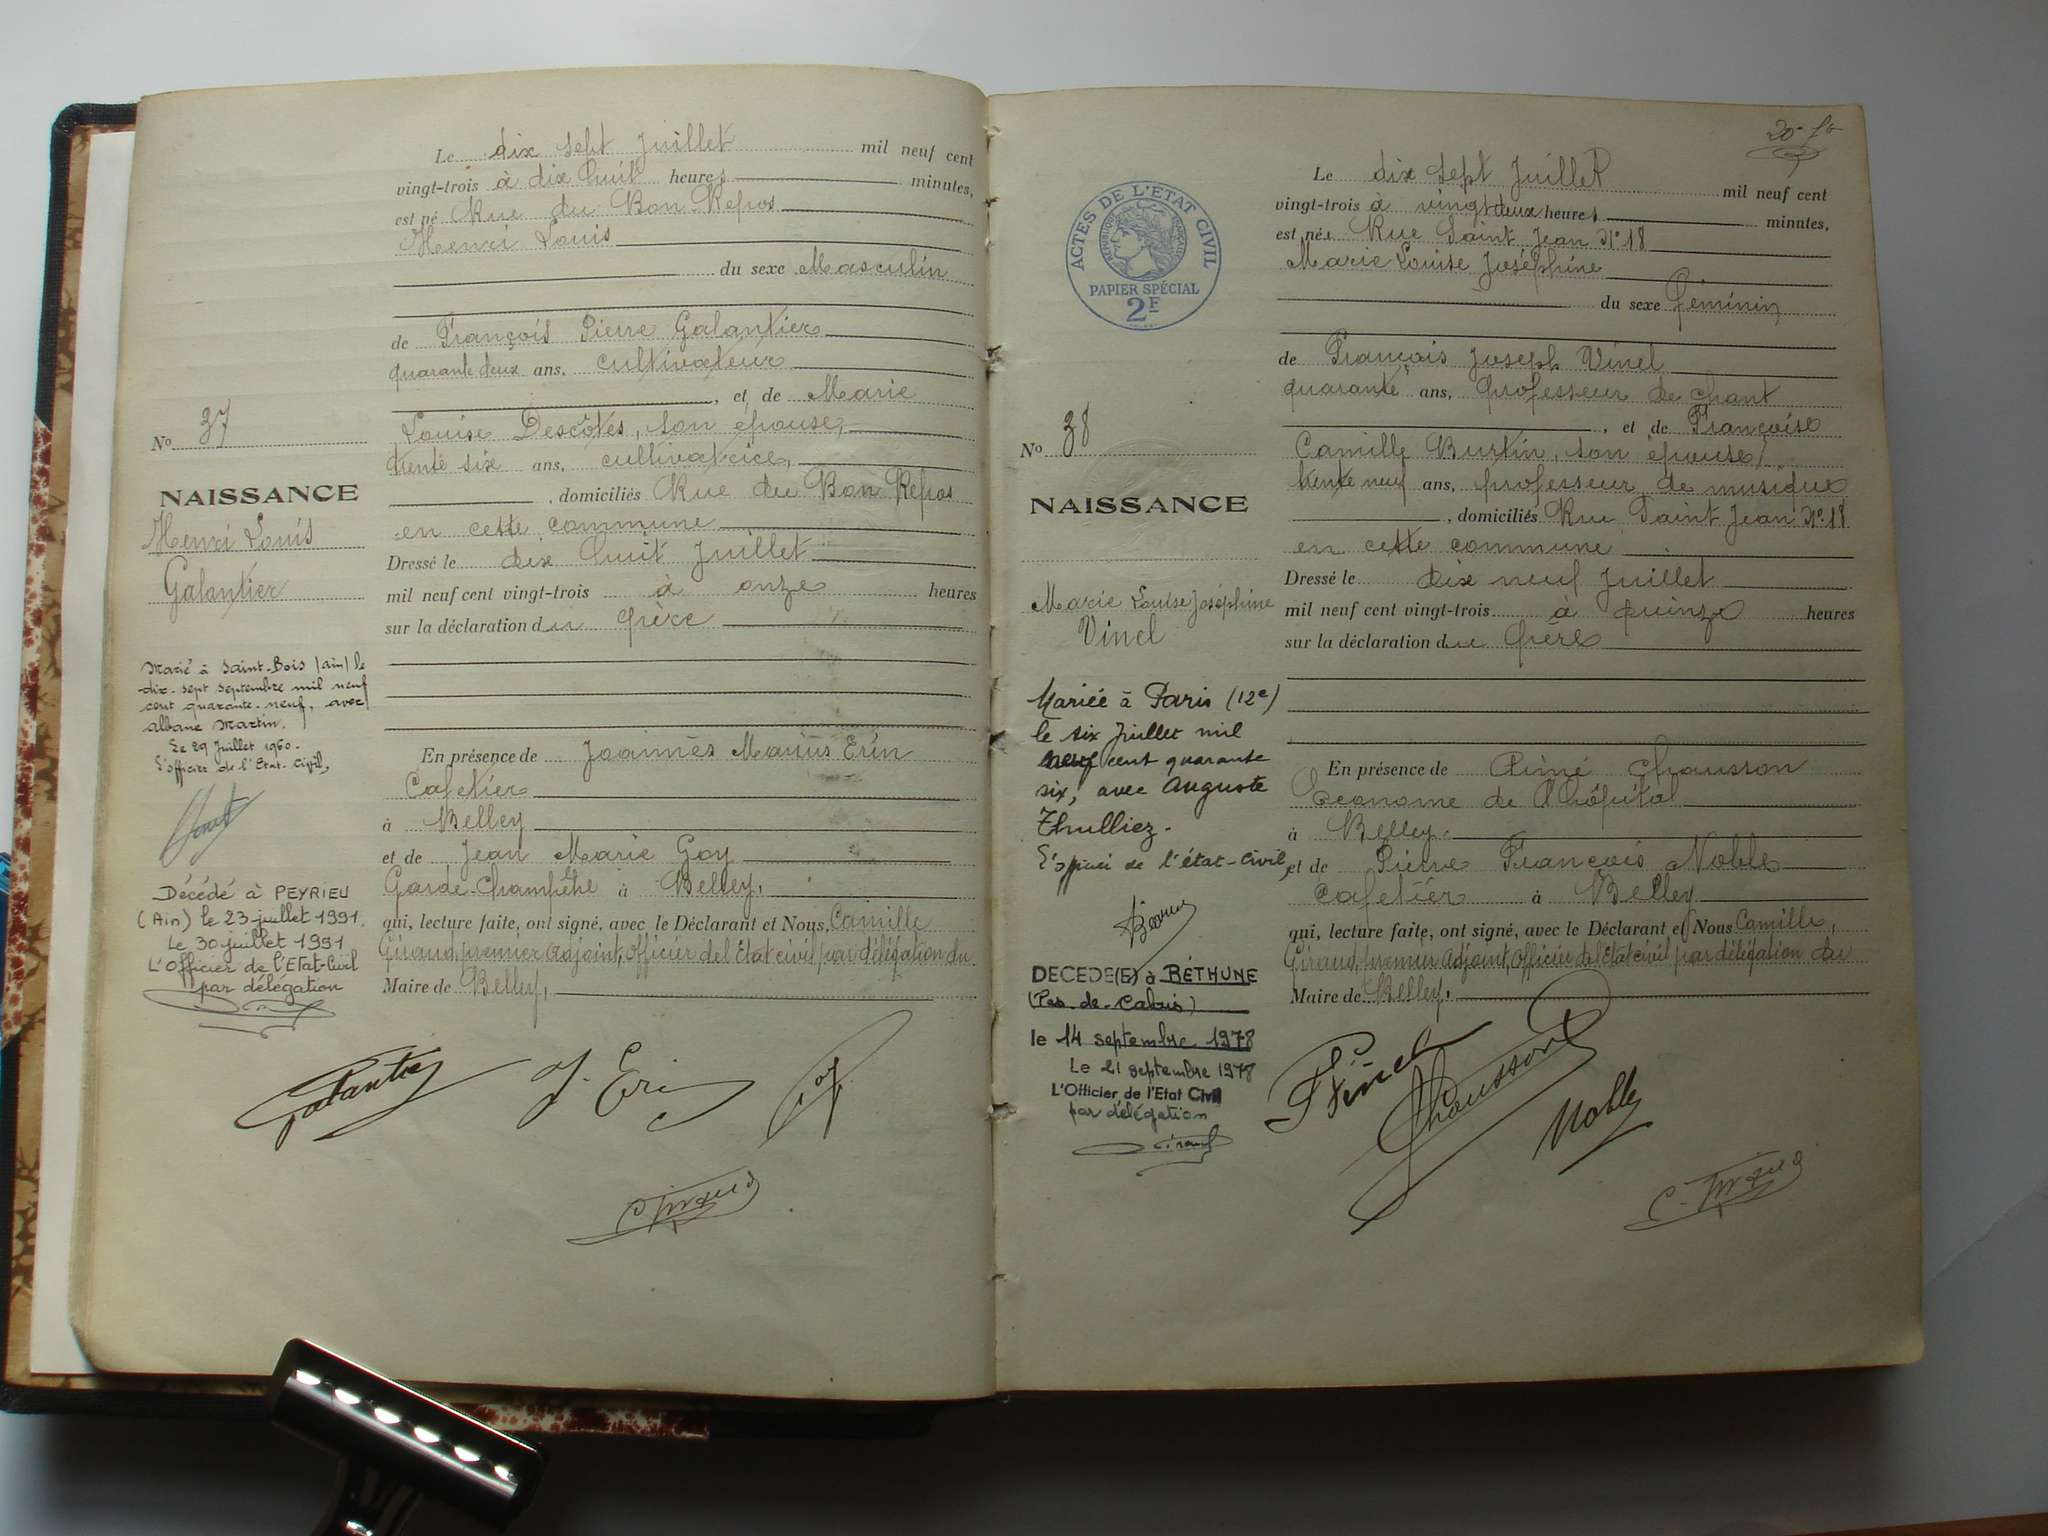 Le dix sept Juillet mil neuf cent
vingt-trois à dix huit heures minutes,
est né Rue du Bon Repos
Henri Louis
du sexe Masculin
de François Pierre Galantier
quarante deux ans, cultivateur
, et de Marie
Louise Descôtes, son épouse,
trente six ans, cultivatrice,
, domiciliés Rue du Bon Repos
en cette commune
Dressé le dix huit Juillet
mil neuf cent vingt-trois à onze heures
sur la déclaration du père
En présence de Joannès Marius Erin
Cafetier
à Belley
et de Jean Marie Goy
Garde-Champêtre à Belley,
qui, lecture faite, ont signé, avec le Déclarant et Nous Camille
Giraud, premier adjoint, officier de l'Etat civil par délégation du
Maire de Belley,
No 37
NAISSANCE
Henri Louis
Galantier
Marié à Saint-Bois (ain) le
dix-sept septembre mil neuf
cent quarante-neuf, avec
albane Martin.
Le 29 Juillet 1960.
L'officier de l'Etat-Civil,
Décédé à PEYRIEU
(Ain) le 23 juillet 1991.
Le 30 juillet 1991
L'Officier de l'Etat-Civil
par délégation
Galantier J. Erin
C. Giraud
20e fo
ACTES DE L'ETAT CIVIL
RÉPUBLIQUE FRANÇAISE
PAPIER SPÉCIAL
2F
Le dix sept Juillet mil neuf cent
vingt-trois à vingt deux heures minutes,
est née Rue Saint Jean No 18
Marie Louise Joséphine
du sexe féminin
de François Joseph Vinel
quarante ans, professeur de chant
, et de Françoise
Camille Burtin, son épouse,
trente neuf ans, professeur de musique
, domiciliés Rue Saint Jean No 18
en cette commune
Dressé le dix neuf Juillet
mil neuf cent vingt-trois à quinze heures
sur la déclaration du père
En présence de Aimé Chausson
Econome de l'hôpital
à Belley.
et de Pierre François Noble
cafetier à Belley
qui, lecture faite, ont signé, avec le Déclarant et Nous Camille,
Giraud, premier adjoint, officier de l'Etat civil par délégation du
Maire de Belley,
No 38
NAISSANCE
Marie Louise Joséphine
Vinel
Mariée à Paris (12e)
le six Juillet mil
neuf cent quarante
six, avec Auguste
Thulliez.
L'officier de l'état-Civil,
DECEDE(E) à BÉTHUNE
(Pas-de-Calais)
le 14 septembre 1978
Le 21 septembre 1978
L'Officier de l'Etat Civil
par délégation
F Vinel Chausson Noble
C. Giraud